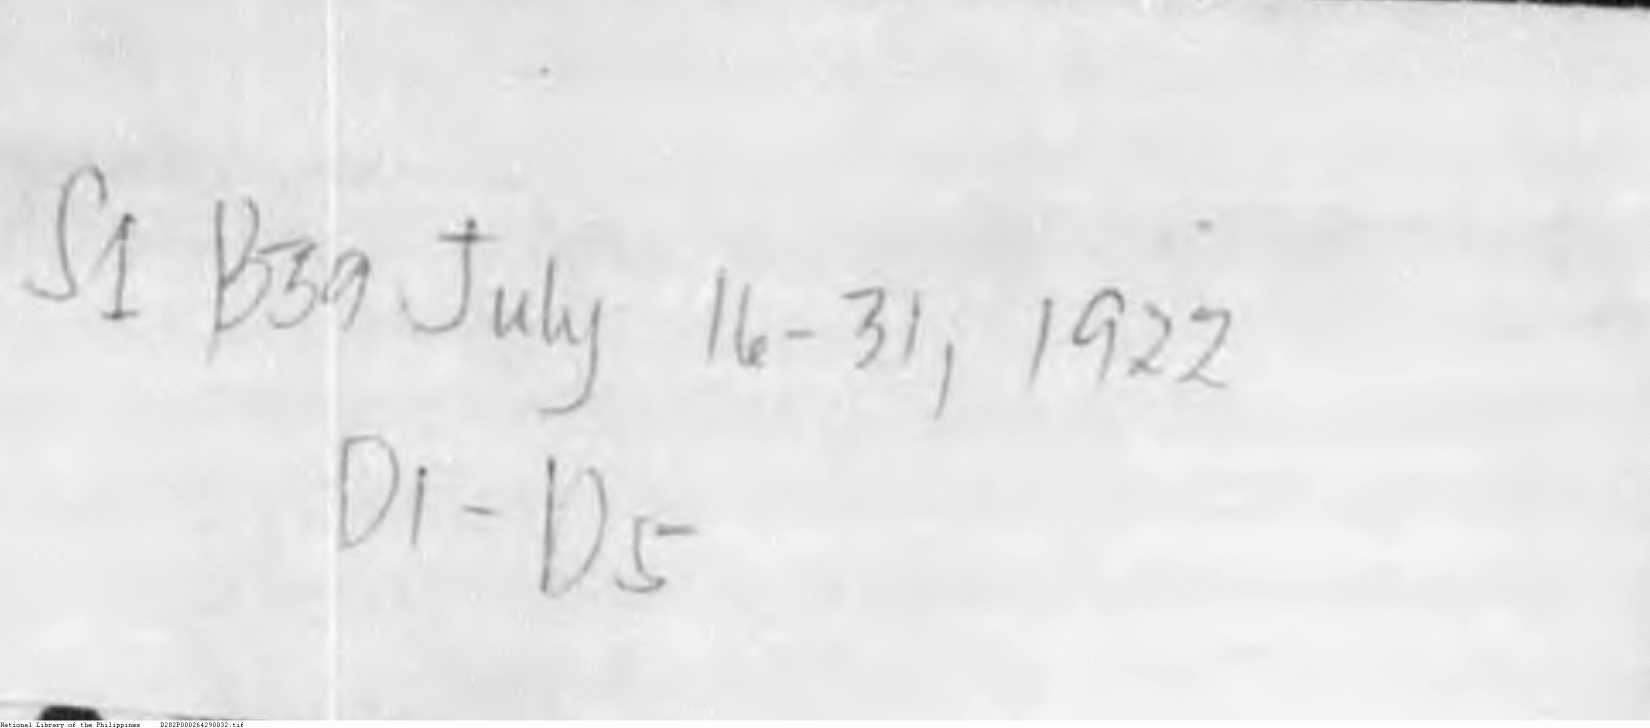 S1 B39 July 16-31, 1922
D1-D5
National Library of the Philippines D282P000264290032.tif